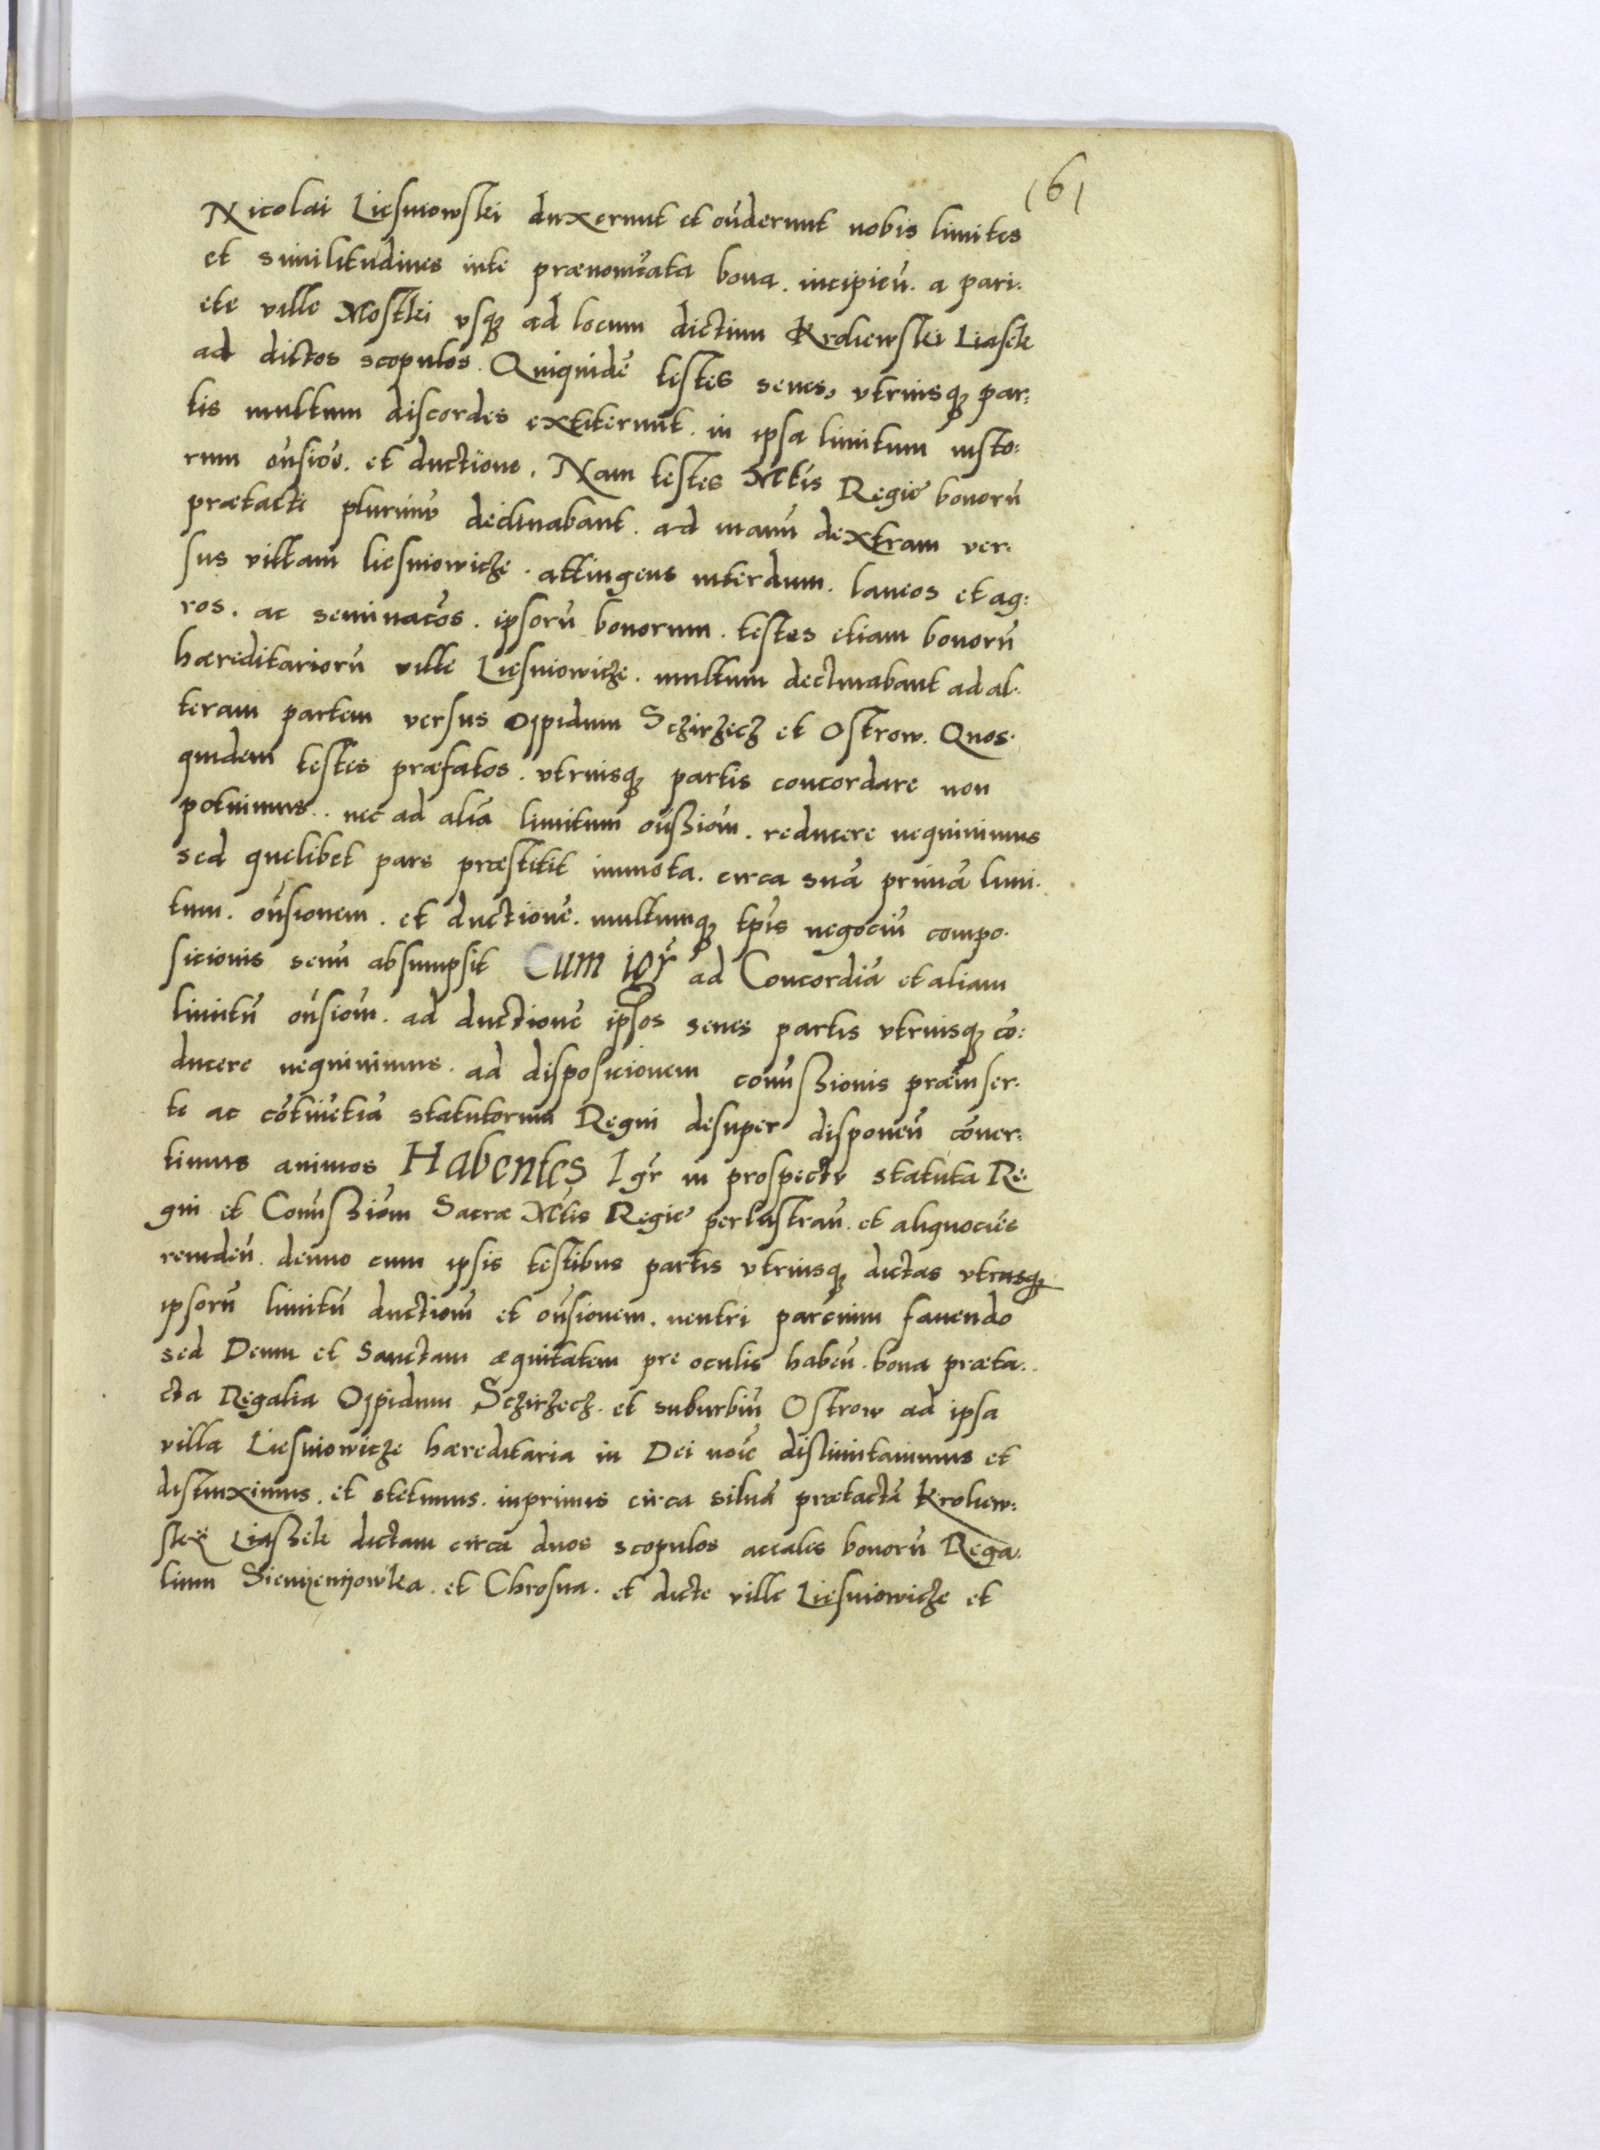 (6)
Nicolai Liesniowski duxerunt et oñderunt nobis limites
et similitudines inte prænom̃ata bona. incipieñ. a pari:
ete ville Mostki vsq3 ad locum dictum Kroliewski Liasek
ad dictos scopulos. Quiquidẽ testes senes, vtriusq3 par:
tis multum discordes extiterunt. in ipsa limitum iusto:
rum oñsioẽ. et ductione. Nam testes M̃tis Regię bonorũ
prætacti plurimũ declinabant. ad manũ dextram ver:
sus villam liesniowicze. attingens interdum. laneos et ag:
ros. ac seminatõs. ipsorũ bonorum. testes etiam bonorũ
hæreditariorũ ville Liesniowicze. multum declinabant ad al:
teram partem versus Oppidum Sczirzecz et Ostrow. Quos:
quidem testes præfatos. vtriusq3 partis concordare non
potuimus.. nec ad aliã limitum oñssiom̃. reducere nequiuimus
sed quelibet pars præstitit immota. circa suã primã limi:
tum. oñsionem. et ductionẽ. multumq3 tp̃is negociũ compo:
sicionis senũ absumpsit Cum igr̃ ad Concordiã et aliam
limitũ oñsiom̃. ad ductionẽ ipsos senes partis vtriusq3 cõ:
ducere nequiuimus. ad disposicionem com̃ssionis præinser:
te ac cõtinẽtiã statutorum Regni desuper disponeñ cõuer:
timus animos Habentes Igr̃ in prospectu statuta Re:
gni et Com̃ssiom̃ Sacræ M̃tis Regię perlustrañ. et aliquocies
reuideñ. denuo cum ipsis testibus partis vtriusq3 dictas vtrasq3
ipsorũ limitũ ductiom̃ et oñsionem. neutri parcium fauendo
sed Deum et Sanctam æquitatem pre oculis habeñ. bona præta:
cta Regalia Oppidum Sczirzecz. et suburbiũ Ostrow ad ipsa
villa Liesniowicze hæreditaria in Dei noĩe dislimitauimus et
distinximus. et stetimus. inprimis circa siluã prætactã Kroliew:
skÿ Liaszek dictam circa duos scopulos aciales bonorũ Rega:
lium Siemÿenÿowka. et Chrosna. et dicte ville Liesniowicze et